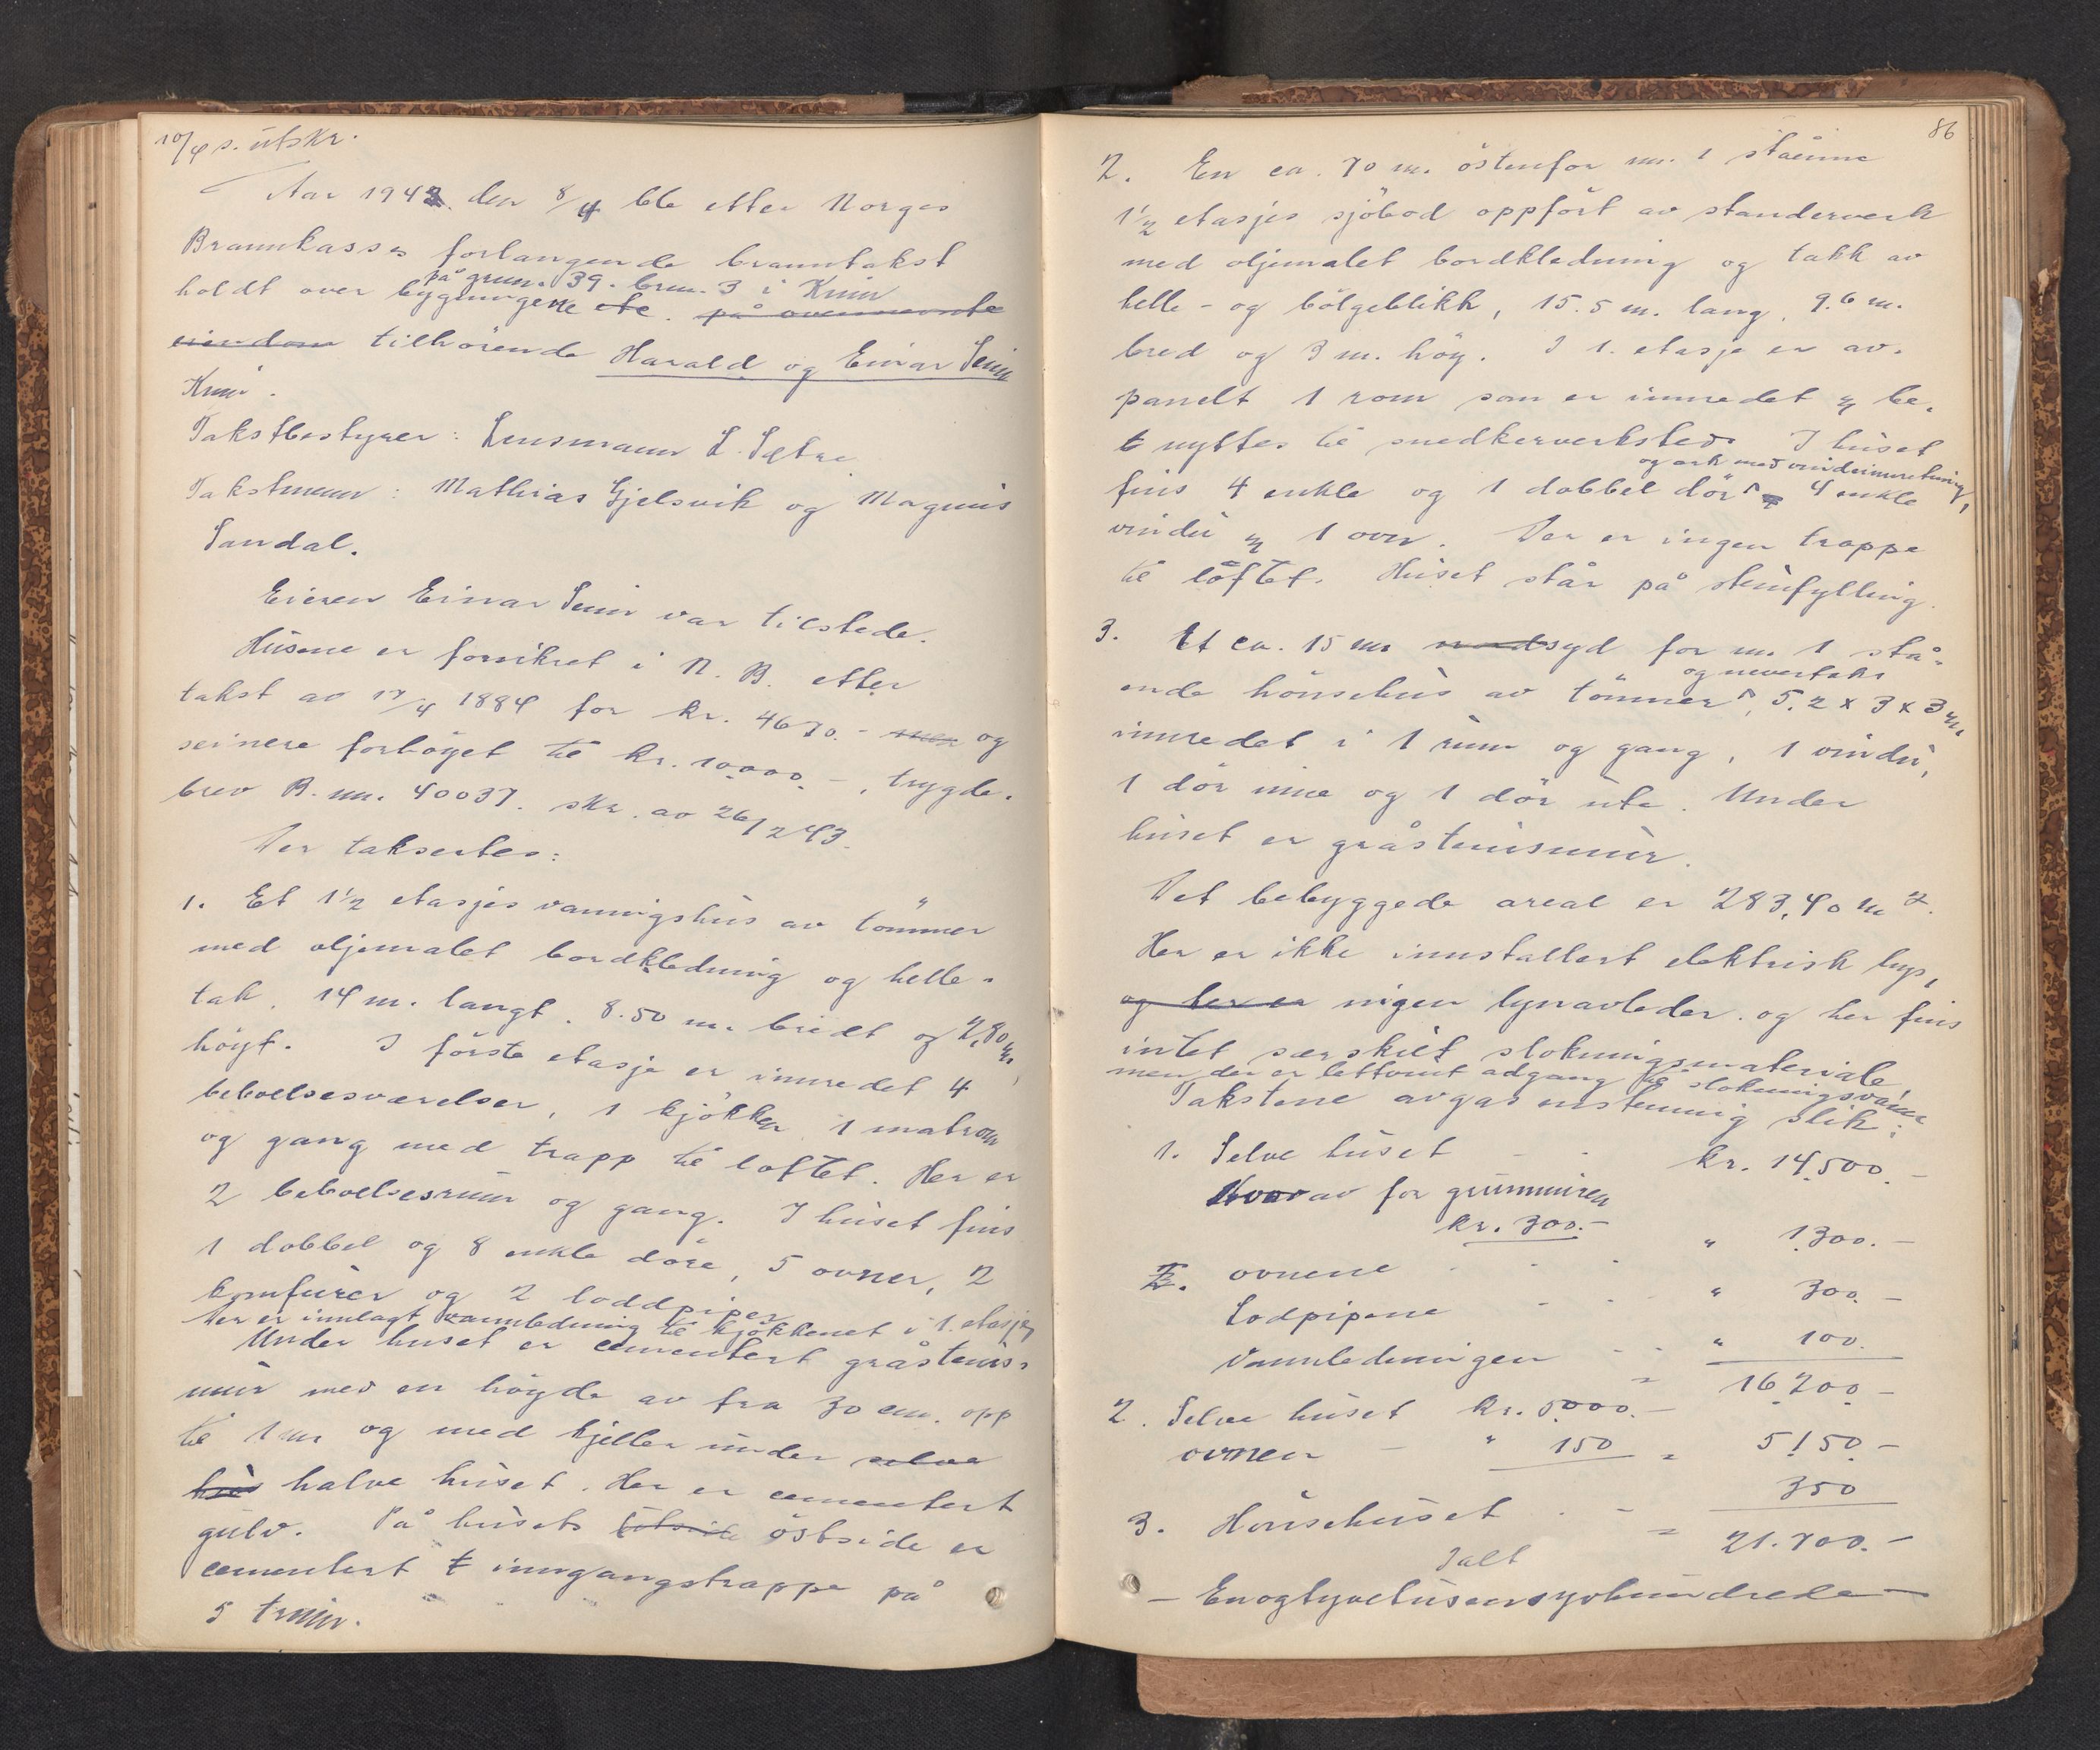 10/4 s. utskr.
Aar 1943 den 8/4 ble etter Norges
Brannkasses forlangende branntakst
på grnr. 39. brnr. 3 i Kinn
holdt over bygningene etc. på ovennevnte
eiendom tilhörende Harald og Einar
Takstbestyrer: Lensmann L. Sætre
Takstmenn: Mathias Gjelsvik og Magnus
Sandal.
Eieren Einar var tilstede.
Husene er forsikret i N. B. etter
takst av 17/4 1884 for kr. 4670.- men og
seinere forhöyet til kr. 10.000.-, trygde-
brev B. nr. 40037. skr. av 26/2 43.
Der taksertes:
1. Et 1½ etasjes vaaningshus av tömmer
med oljemalet bordkledning og helle-
tak. 14 m. langt. 8.50 m. bredt og 2,80 m.
höyt. I förste etasje er innredet 4
beboelsesværelser, 1 kjökken 1 matrom
og gang med trapp til loftet. Her er
2 beboelsesrum og gang. I huset fins
1 dobbel og 8 enkle döre, 5 ovner, 2
komfurer og 2 loddpiper
Der er innlagt vannledning til kjökkenet i 1. etasje
Under huset er cementert gråsteins-
mur med en höyde av fra 30 cm. opp
til 1 m og med kjeller under selve
hus halve huset. Her er cementert
gulv. På husets östside er
cementert t inngangstrappe på
5 trinn.
86
2. En ca. 70 m. östenfor nr. 1 stående
1½ etasjes sjöbod oppfört av standerverk
med oljemalet bordkledning og takk av
helle- og bölgeblikk, 15.5 m. lang, 9.6 m.
bred og 3 m. höy. I 1. etasje er av-
panelt 1 rom som er innredet og be-
t nyttes til snedkerverksted. I huset
og ark med vindeinnretning,
fins 4 enkle og 1 dobbel dör og 4 enkle
vindu og 1 ovn. Der er ingen trappe
til löftet. Huset står på steinfylling.
3. Et ca. 15 m nord syd for nr. 1 stå-
og nevertak
ende hönsehus av tömmer, 5.2 x 3 x 3 m.
innredet i 1 rum og gang, 1 vindu,
1 dör inne og 1 dör ute. Under
huset er gråsteinsmur.
Det bebyggede areal er 283,40 m².
Her er ikke innstallert elektrisk lys,
og her er ingen lynavleder. og her fins
intet særskilt slokningsmateriale,
men der er lettvint adgang til slokningsvann
Takstene avgas enstemmig slik:
1. Selve huset - - kr. 14.500.-
Hvorav for grunnmuren
kr. 300.-
ovnene . . . " 1.300.-
Lodpipene - - " 300.-
Vannledningen - - " 100.
" 16.200.-
2. Selve huset kr. 5.000.-
ovnen - " 150 " 5.150.-
3. Hönsehuset . - 350
Ialt " 21.700.-
- Enogtyvetusensyvhundrede -